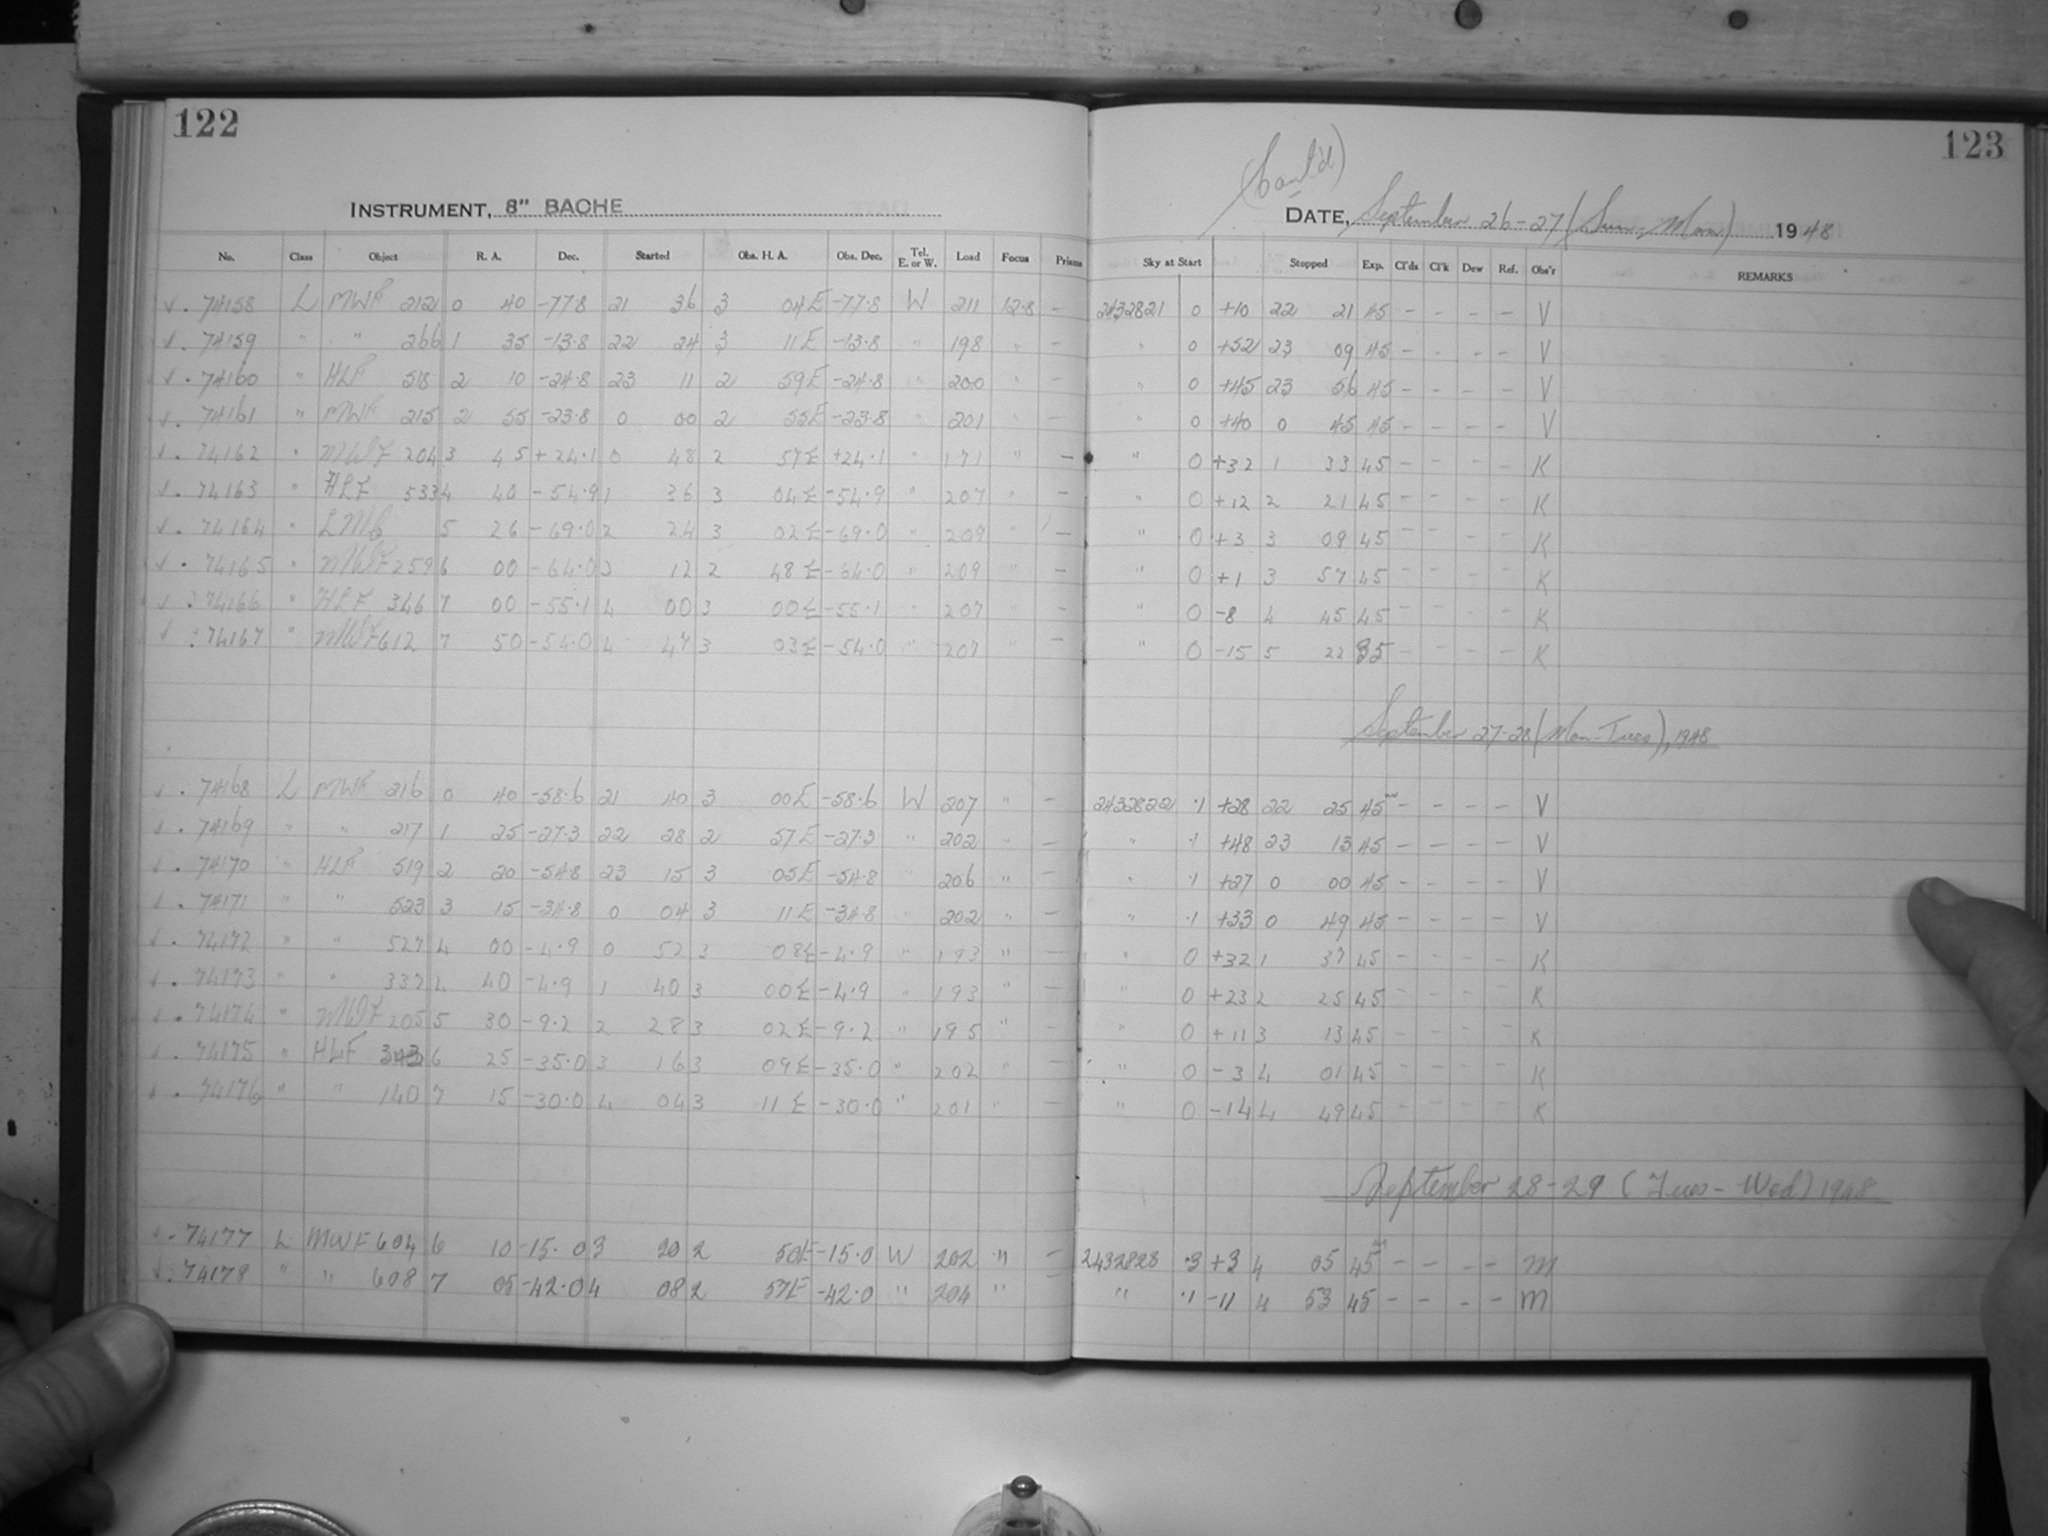 122
123
(Cont'd)
INSTRUMENT, 8" BACHE
DATE, September 26-27 (Sun-Mon) 1948
No. Class Object R. A. Dec. Started Obs. H. A. Obs. Dec. Tel. E. or W. Load Focus Prisms Sky at Start Stopped Exp. Cl'ds Cl'k Dew Ref. Obs'r REMARKS
√ . 74158 L MWF 212 0 40 -77.8 21 36 3 04E -77.8 W 211 12.8 - 2432821 0 +10 22 21 45 - - - - V
√ . 74159 " " 266 1 35 -13.8 22 24 3 11E -13.8 " 198 " - " 0 +52 23 09 45 - - - - V
√ . 74160 " HLF 518 2 10 -24.8 23 11 2 59E -24.8 " 200 " - " 0 +45 23 56 45 - - - - V
√ . 74161 " MWF 215 2 55 -23.8 0 00 2 55E -23.8 " 201 " - " 0 +40 0 45 45 - - - - V
√ . 74162 " MWF 204 3 45 +24.1 0 48 2 57E +24.1 " 171 " - " 0 +32 1 33 45 - - - - K
√ . 74163 " HLF 533 4 40 -54.9 1 36 3 04E -54.9 " 207 " - " 0 +12 2 21 45 - - - - K
√ . 74164 " LMC 5 26 -69.0 2 24 3 02E -69.0 " 209 " - " 0 +3 3 09 45 - - - - K
√ . 74165 " MWF 259 6 00 -64.0 3 12 2 48E -64.0 " 209 " - " 0 +1 3 57 45 - - - - K
√ . 74166 " HLF 346 7 00 -55.1 4 00 3 00E -55.1 " 207 " - " 0 -8 4 45 45 - - - - K
√ . 74167 " MWF 612 7 50 -54.0 4 47 3 03E -54.0 " 207 " - " 0 -15 5 22 35 - - - - K
September 27-28 (Mon-Tues), 1948
√ . 74168 L MWF 216 0 40 -58.6 21 40 3 00E -58.6 W 207 " - 2432822 .1 +28 22 25 45 - - - - V
√ . 74169 " " 217 1 25 -27.3 22 28 2 57E -27.3 " 202 " - " .1 +48 23 13 45 - - - - V
√ . 74170 " HLF 519 2 20 -54.8 23 15 3 05E -54.8 " 206 " - " .1 +27 0 00 45 - - - - V
√ . 74171 " " 523 3 15 -34.8 0 04 3 11E -34.8 " 202 " - " .1 +33 0 49 45 - - - - V
√ . 74172 " " 527 4 00 -4.9 0 52 3 08E -4.9 " 193 " - " 0 +32 1 37 45 - - - - K
√ . 74173 " " 337 4 40 -4.9 1 40 3 00E -4.9 " 193 " - " 0 +23 2 25 45 - - - - K
√ . 74174 " MWF 205 5 30 -9.2 2 28 3 02E -9.2 " 195 " - " 0 +11 3 13 45 - - - - K
√ . 74175 " HLF 343 6 25 -35.0 3 16 3 09E -35.0 " 202 " - " 0 -3 4 01 45 - - - - K
√ . 74176 " " 140 7 15 -30.0 4 04 3 11E -30.0 " 201 " - " 0 -14 4 49 45 - - - - K
September 28-29 (Tues-Wed) 1948
√ . 74177 L MWF 604 6 10 -15.0 3 20 2 50E -15.0 W 202 " - 2432823 .3 +3 4 05 45 - - - - M
√ . 74178 " " 608 7 05 -42.0 4 08 2 57E -42.0 " 204 " " .1 -11 4 53 45 - - - - M